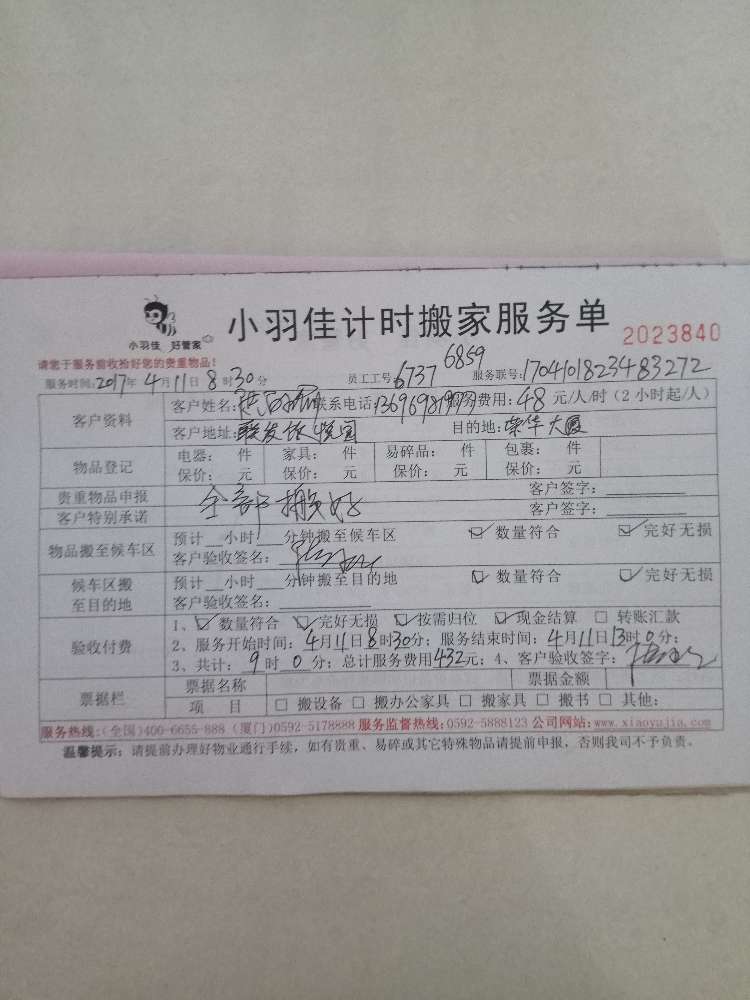 小羽佳 好管家
小羽佳计时搬家服务单
2023840
请您于服务前收捡好您的贵重物品!
服务时间:2017年4月11日8时30分 员工工号:6737 6859 服务联号:1704101823483272
客户资料
客户姓名: 联系电话: 服务费用:48元/人/时(2小时起/人)
客户地址: 目的地:荣华大厦
物品登记
电器: 件 家具: 件 易碎品: 件 包裹: 件
保价: 元 保价: 元 保价: 元 保价: 元
贵重物品申报 客户签字:
全部搬好
客户特别承诺 客户签字:
物品搬至候车区
预计 小时 分钟搬至候车区 ☑数量符合 ☑完好无损
客户验收签名:
候车区搬至目的地
预计 小时 分钟搬至目的地 ☑数量符合 ☑完好无损
客户验收签名:
验收付费
1、☑数量符合 ☑完好无损 ☑按需归位 ☑现金结算 □转账汇款
2、服务开始时间:4月11日8时30分;服务结束时间:4月11日13时0分;
3、共计:9时0分;总计服务费用432元;4、客户验收签字:
票据栏
票据名称 票据金额
项 目 □搬设备 □搬办公家具 □搬家具 □搬书 □其他:
服务热线:(全国)400-6655-888 (厦门)0592-5178888 服务监督热线:0592-5888123 公司网站:www.xiaoyujia.com
温馨提示:请提前办理好物业通行手续,如有贵重、易碎或其它特殊物品请提前申报,否则我司不予负责。